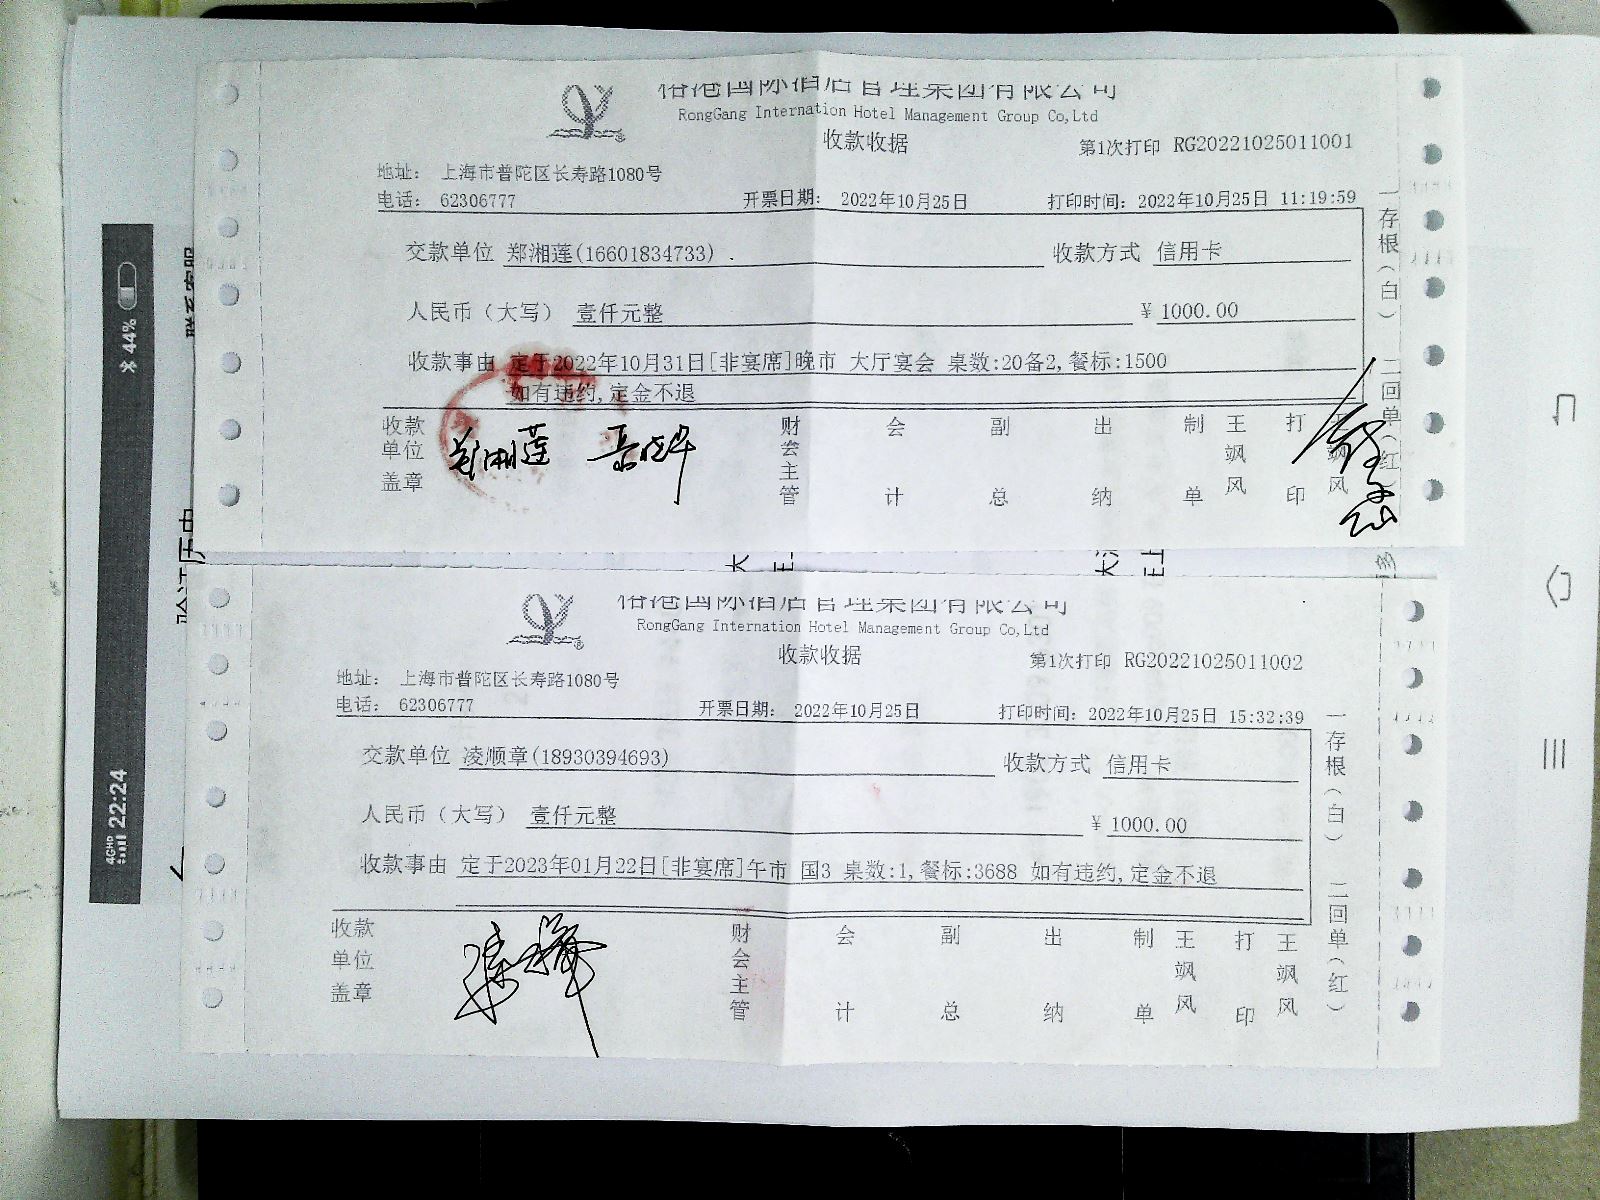 国际酒店管理集团有限公司
RongGang Internation Hotel Management Group Co,Ltd
收款收据
第1次打印 RG20221025011001
地址: 上海市普陀区长寿路1080号
电话: 62306777
开票日期: 2022年10月25日
打印时间: 2022年10月25日 11:19:59
交款单位 郑湘莲(16601834733)
收款方式 信用卡
人民币（大写） 壹仟元整
¥ 1000.00
收款事由 定于2022年10月31日[非宴席]晚市 大厅宴会 桌数:20备2,餐标:1500
如有违约,定金不退
收款单位盖章
郑湘莲
财会主管
会计
副总
出纳
制单
王飒风
打印
王飒风
一存根(白) 二回单(红)
国际酒店管理集团有限公司
RongGang Internation Hotel Management Group Co,Ltd
收款收据
第1次打印 RG20221025011002
地址: 上海市普陀区长寿路1080号
电话: 62306777
开票日期: 2022年10月25日
打印时间: 2022年10月25日 15:32:39
交款单位 凌顺章(18930394693)
收款方式 信用卡
人民币（大写） 壹仟元整
¥ 1000.00
收款事由 定于2023年01月22日[非宴席]午市 国3 桌数:1,餐标:3688 如有违约,定金不退
收款单位盖章
财会主管
会计
副总
出纳
制单
王飒风
打印
王飒风
一存根(白) 二回单(红)
4GHD 22:24
44%